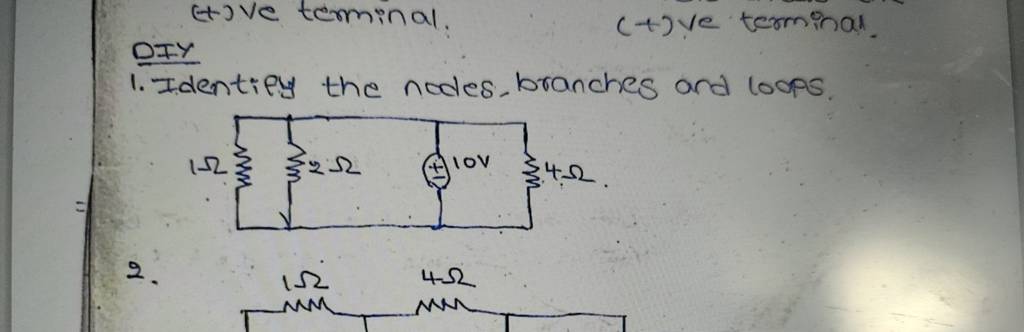 (+)ve terminal.
(+)ve terminal.
DIY
1. Identify the nodes, branches and loops.
1Ω 2Ω 10V 4Ω.
2.
1Ω 4Ω